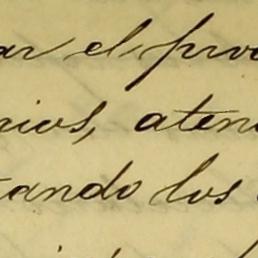 ar el pro
rios, aten
tando los